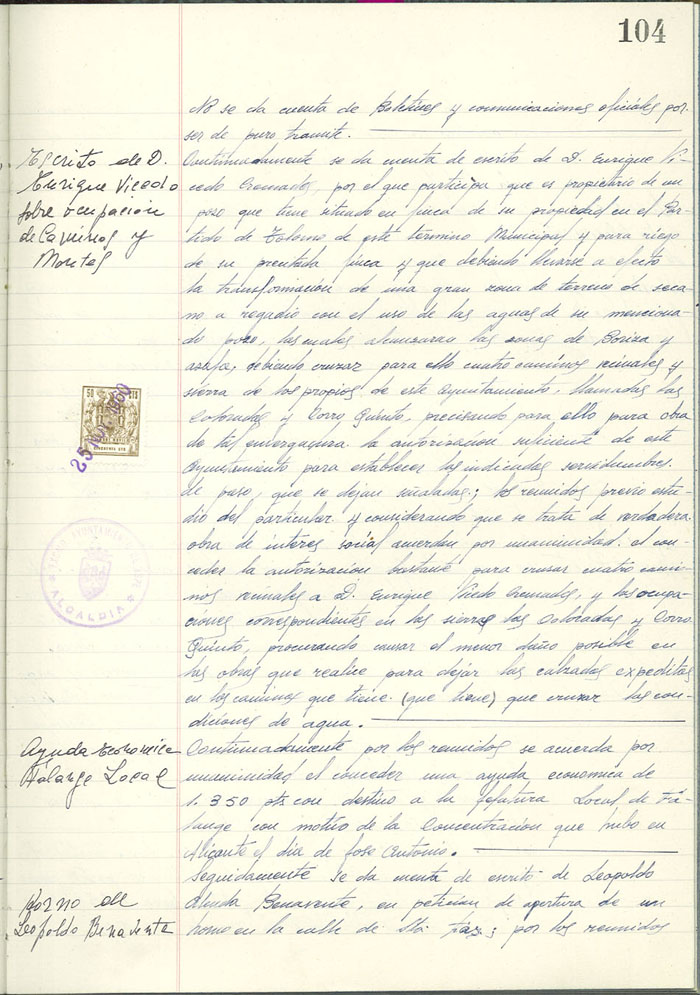 104
No se da cuenta de Boletines y comunicaciones oficiales por
ser de puro tramite.
Escrito de D.
Enrique Vicedo
sobre ocupación
de Caminos y
Montes
Continuadamente se da cuenta de escrito de D. Enrique Vi-
cedo Cremades, por el que participa que es propietario de un
poso que tiene situado en finca de su propiedad en el Par-
tido de de este termino Municipal y para riego
de su precitada finca y que debiendo llevarse a efecto
la transformación de una gran zona de terreno de seca-
no a regadio con el uso de las aguas de su menciona-
do pozo, las cuales alcanzaran las zonas de y
debiendo cruzar para ello cuatro caminos vecinales y
sierra de los propios de este Ayuntamiento, llamadas las
Coloradas y Corro Quinto, precisando para ello para obra
de tal envergadura la autorización suficiente de este
Ayuntamiento para establecer las indicadas servidumbres
de paso, que se dejan señaladas; los reunidos previo estu-
dio del particular y considerando que se trata de verdadera
obra de interés social acuerdan por unanimidad el con-
ceder la autorizacion bastante para cruzar cuatro cami-
nos vecinales a D. Enrique Vicedo Cremades, y las ocupa-
ciones correspondientes en las sierras las Coloradas y Corro
Quinto, procurando causar el menor daño posible en
las obras que realice para dejar las calzadas expeditas
en los caminos que tiene (que tiene) que cruzar las con-
diciones de agua.
50 PTS
25 1960
ALCALDIA
Ayuda Económica
Falange Local
Continuadamente por los reunidos se acuerda por
unanimidad el conceder una ayuda economica de
1.350 pts con destino a la Jefatura Local de Fa-
lange con motivo de la Concentración que hubo en
Alicante el dia de Jose Antonio.
Horno de
Leopoldo Benavente
Seguidamente se da cuenta de escrito de Leopoldo
Benavente, en peticion de apertura de un
horno en la calle de Sta. Faz; por los reunidos